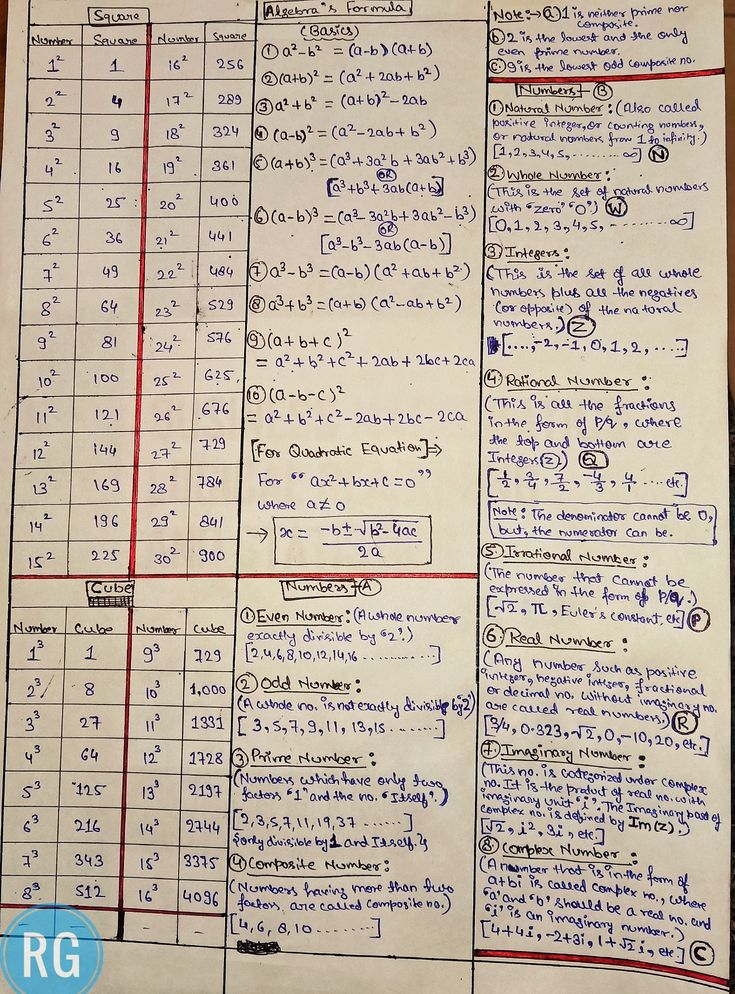 Square
Number Square Number Square
1² 1 16² 256
2² 4 17² 289
3² 9 18² 324
4² 16 19² 361
5² 25 20² 400
6² 36 21² 441
7² 49 22² 484
8² 64 23² 529
9² 81 24² 576
10² 100 25² 625
11² 121 26² 676
12² 144 27² 729
13² 169 28² 784
14² 196 29² 841
15² 225 30² 900
Cube
Number Cube Number Cube
1³ 1 9³ 729
2³ 8 10³ 1,000
3³ 27 11³ 1331
4³ 64 12³ 1728
5³ 125 13³ 2197
6³ 216 14³ 2744
7³ 343 15³ 3375
8³ 512 16³ 4096
- - - -
RG
Algebra's Formula
(Basics)
① a²-b² = (a-b) (a+b)
② (a+b)² = (a²+2ab+b²)
③ a²+b² = (a+b)²-2ab
④ (a-b)² = (a²-2ab+b²)
⑤ (a+b)³ = (a³+3a²b+3ab²+b³)
OR
[a³+b³+3ab(a+b)]
⑥ (a-b)³ = (a³-3a²b+3ab²-b³)
OR
[a³-b³-3ab(a-b)]
⑦ a³-b³ = (a-b) (a²+ab+b²)
⑧ a³+b³ = (a+b) (a²-ab+b²)
⑨ (a+b+c)²
= a²+b²+c²+2ab+2bc+2ca
⑩ (a-b-c)²
= a²+b²+c²-2ab+2bc-2ca
[For Quadratic Equation]⇒
For "ax²+bx+c=0"
where a≠0
→ x = -b±√b²-4ac
2a
Numbers-(A)
① Even Number: (A whole number
exactly divisible by "2".)
[2,4,6,8,10,12,14,16 ............]
② Odd Number:
(A whole no. is not exactly divisible by "2")
[3,5,7,9,11,13,15 ........]
③ Prime Number:
(Numbers which have only two
factors "1" and the no. "Itself".)
[2,3,5,7,11,19,37 .......]
{only divisible by 1 and Itself.}
④ Composite Number:
(Numbers having more than two
factors, are called composite no.)
[4,6,8,10 ........]
Note:→ ⓐ 1 is neither prime nor
composite.
ⓑ 2 is the lowest and the only
even prime number.
ⓒ 9 is the lowest odd composite no.
Numbers-(B)
① Natural Number: (Also called
positive integer, or counting numbers,
or natural numbers from 1 to infinity.)
[1,2,3,4,5, ......... ∞] Ⓝ
② Whole Number:
(This is the set of natural numbers
with "zero" "0".) Ⓦ
[0,1,2,3,4,5, ......... ∞]
③ Integers:
(This is the set of all whole
numbers plus all the negatives
(or opposite) of the natural
numbers.) Ⓩ
[...., -2, -1, 0, 1, 2, ....]
④ Rational Number:
(This is all the fractions
in the form of P/q, where
the top and bottom are
Integers(Z).) Ⓠ
[1/2, 3/4, 7/2, -4/3, 4/1 ... etc.]
Note: The denominator cannot be 0,
but, the numerator can be.
⑤ Irrational Number:
(The number that cannot be
expressed in the form of P/q.)
[√2, π, Euler's constant, etc] Ⓟ
⑥ Real Number:
(Any number such as positive
integer, negative integer, fractional
or decimal no. without imaginary no.
are called real numbers.) Ⓡ
[3/4, 0.323, √2, 0, -10, 20, etc.]
⑦ Imaginary Number:
(This no. is categorized under complex
no. It is the product of real no. with
imaginary unit "i". The Imaginary part of
complex no. is defined by Im(Z).)
[√2, i², 3i, etc.]
⑧ Complex Number:
(A number that is in the form of
a+bi is called complex no., where
"a" and "b" should be a real no. and
"i" is an imaginary number.)
[4+4i, -2+3i, 1+√2i, etc] Ⓒ